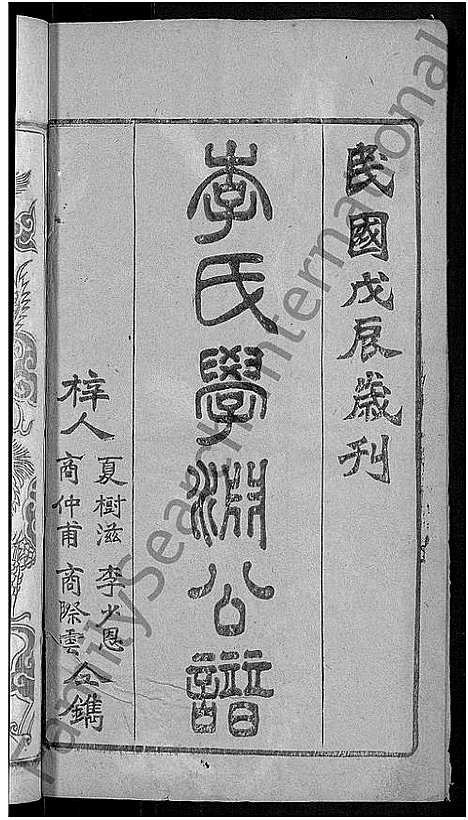 民國戊辰歲刊
李氏學淵公譜
梓人
夏樹滋 李少恩
商仲甫 商際雲
仝鐫
FamilySearch International